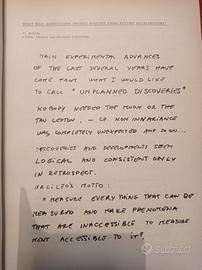 WHAT WILL
C. Rubbia
CERN, Geneva and Harvard University
MAIN EXPERIMENTAL ADVANCES
OF THE LAST SEVERAL YEARS HAVE
COME FROM WHAT I WOULD LIKE
TO CALL "UNPLANNED DISCOVERIES"
NOBODY NEEDED THE MUON OR THE
TAU LEPTON, - CP NON INVARIANCE
WAS COMPLETELY UNEXPECTED AND SO ON...
DISCOVERIES AND DEVELOPMENTS SEEM
LOGICAL AND CONSISTENT ONLY
IN RETROSPECT.
GALILEO'S MOTTO:
"MEASURE EVERYTHING THAT CAN BE
MEASURED AND MAKE PHENOMENA
THAT ARE INACCESSIBLE TO MEASURE
MENT ACCESSIBLE TO IT".
subito